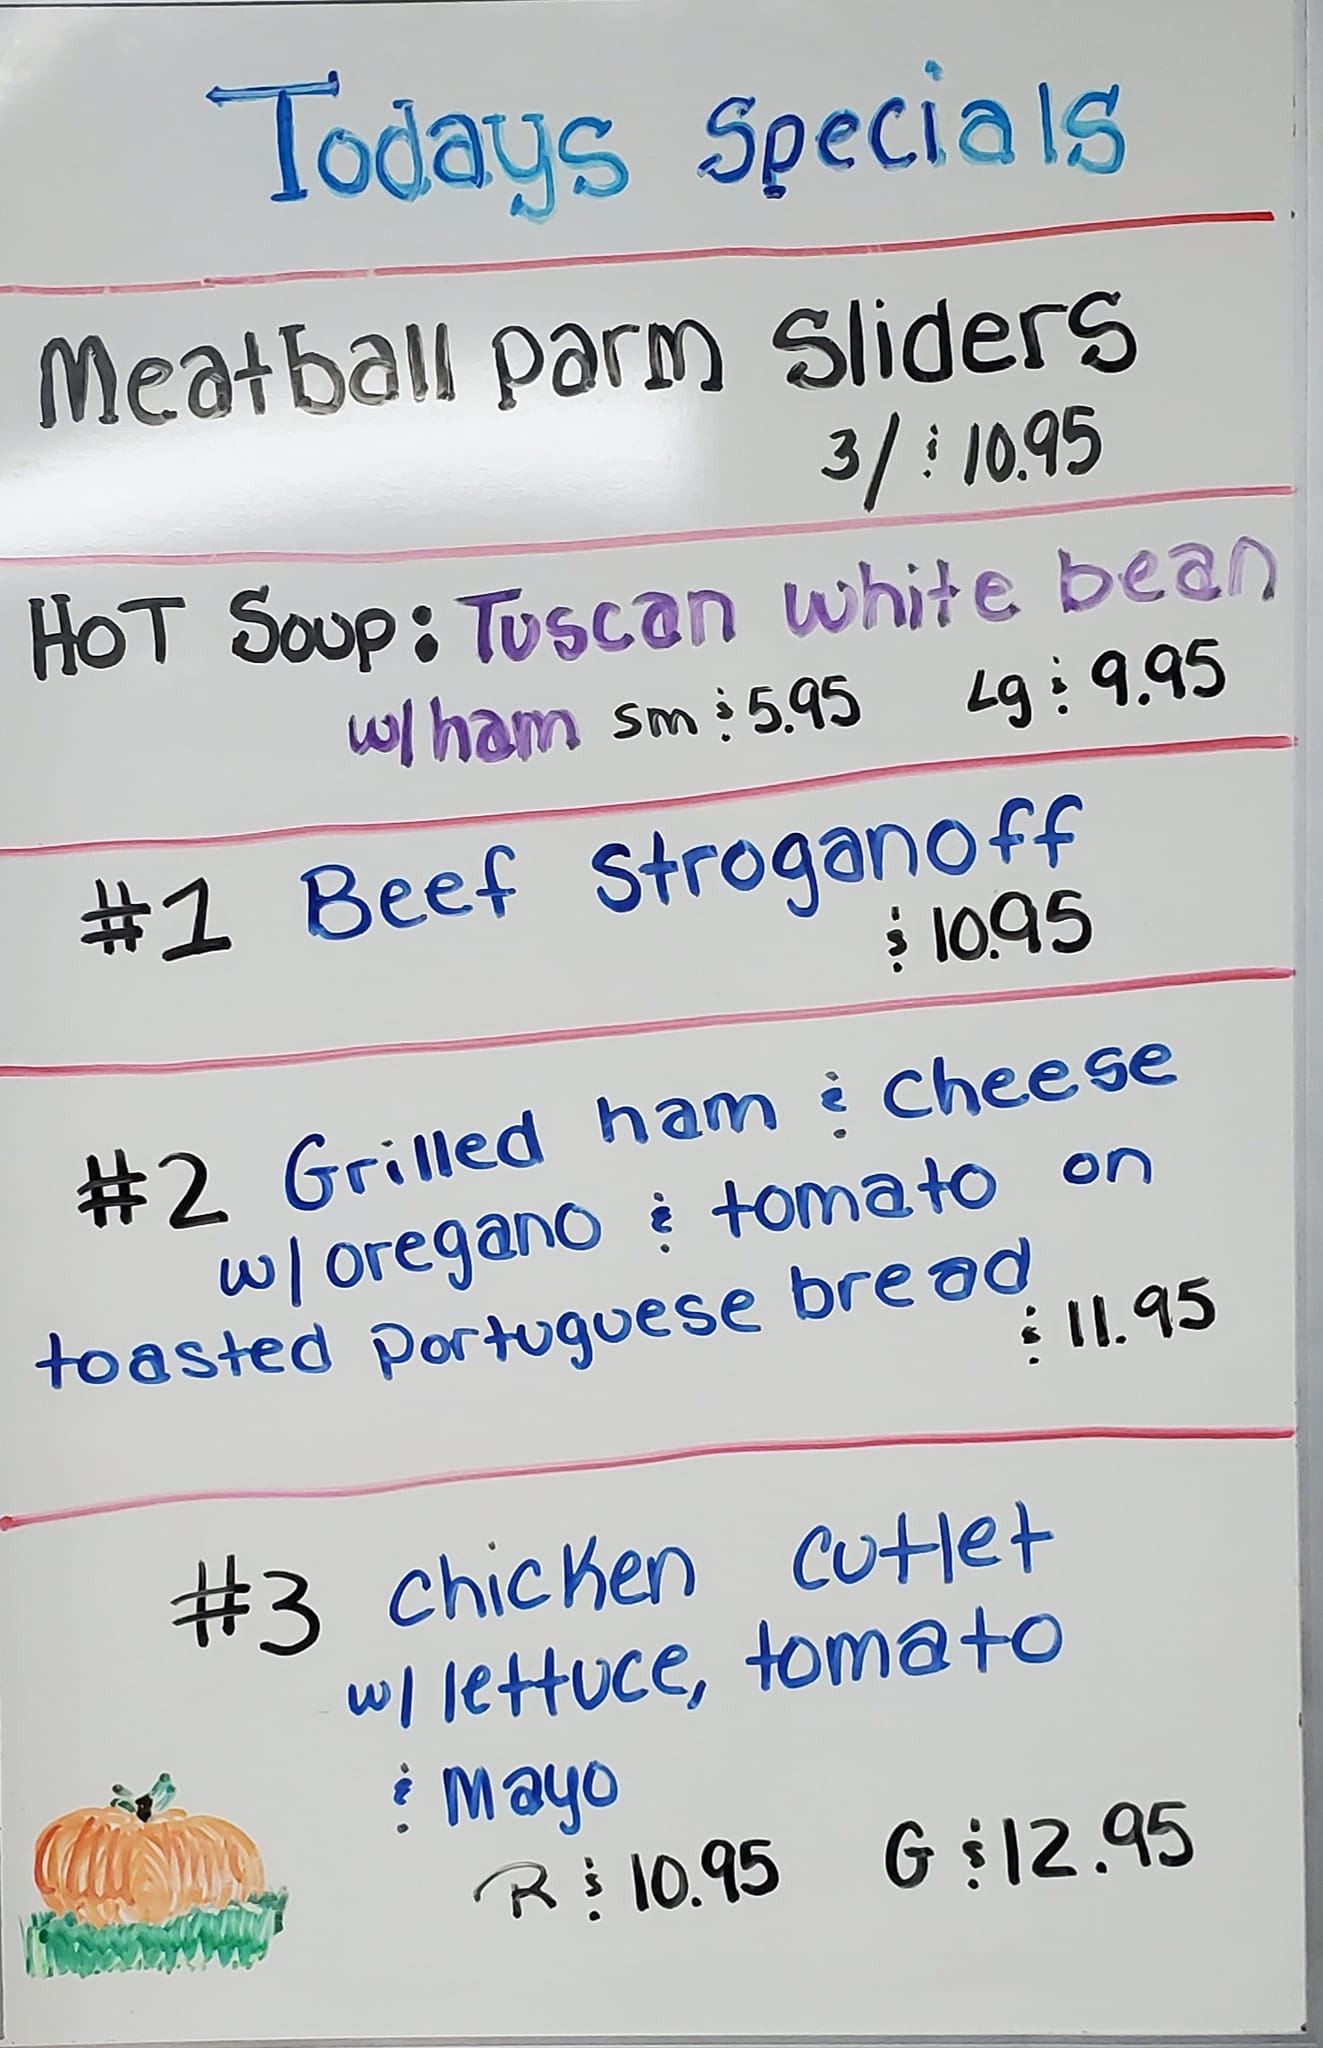 Todays Specials
Meatball Parm Sliders
3/ $10.95
HOT Soup: Tuscan white bean
w/ ham sm $5.95 Lg $9.95
#1 Beef Stroganoff
$10.95
#2 Grilled ham & cheese
w/ oregano & tomato on
toasted Portuguese bread
$11.95
#3 Chicken Cutlet
w/ lettuce, tomato
& Mayo
R $10.95 G $12.95